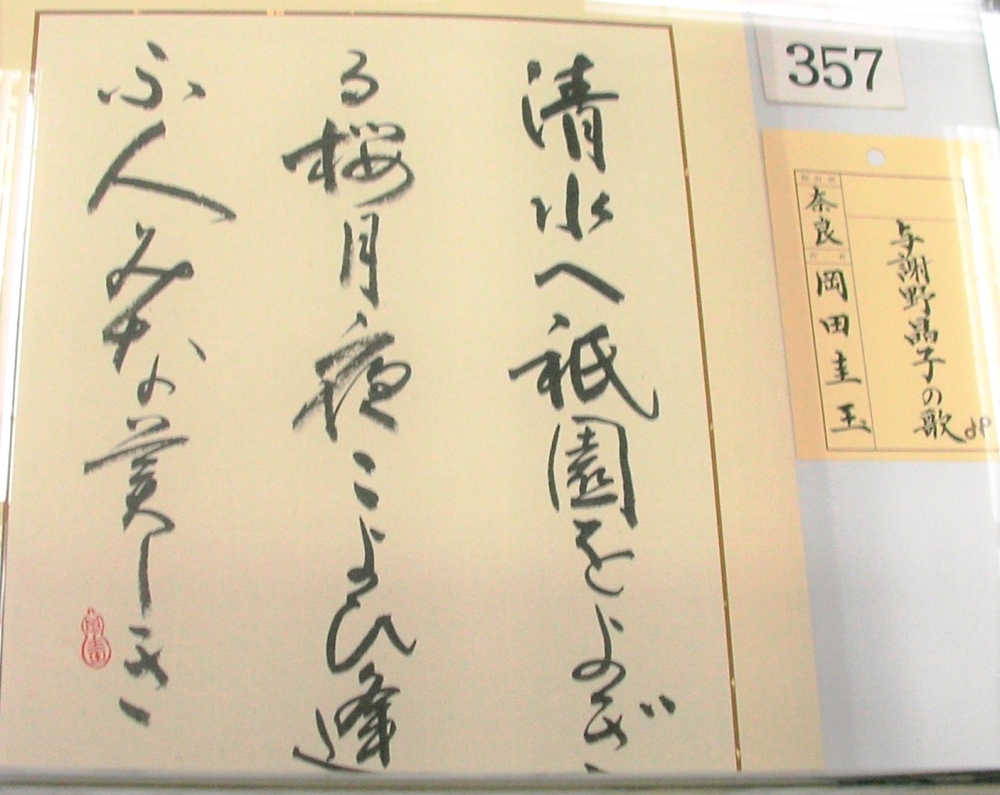 357
清水へ祇園をよぎ
る桜月夜こよひ逢
ふ人みな美しき
与謝野晶子の歌より
奈良
岡田圭玉